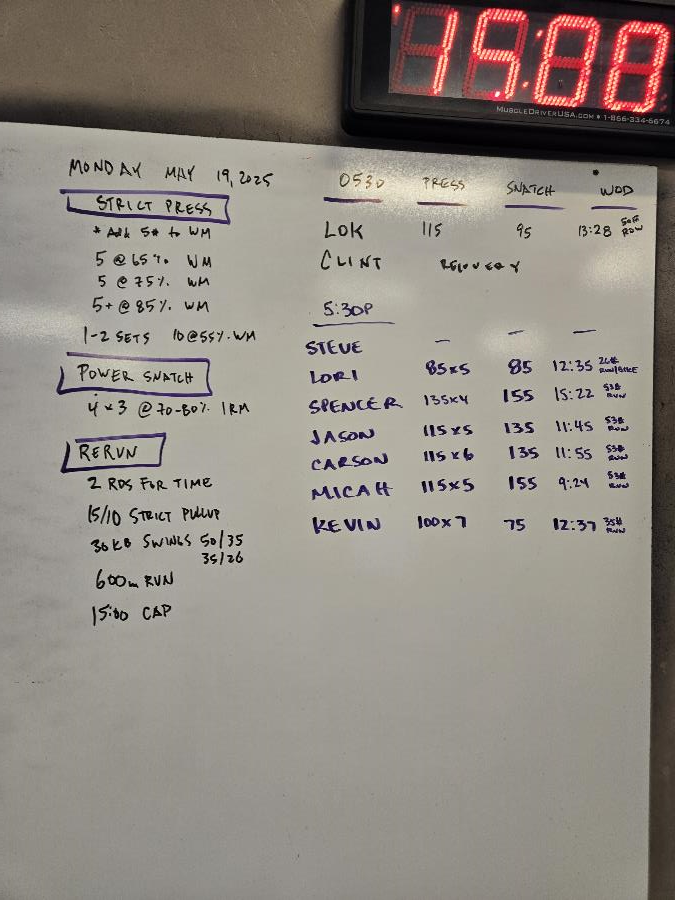 15:00
MUSCLEDRIVERUSA.COM • 1-866-334-6674
MONDAY MAY 19, 2025
STRICT PRESS
* Add 5# to WM
5 @ 65% WM
5 @ 75% WM
5+ @ 85% WM
1-2 SETS 10 @ 55% WM
POWER SNATCH
4 x 3 @ 70-80% 1RM
RERUN
2 RDS FOR TIME
15/10 STRICT PULLUP
30 KB SWINGS 50/35
35/26
600m RUN
15:00 CAP
0530 PRESS SNATCH WOD
LOK 115 95 13:28 50# ROW
CLINT RECOVERY
5:30P
STEVE — — —
LORI 85x5 85 12:35 26# RUN/BIKE
SPENCER 135x4 155 15:22 53# RUN
JASON 115x5 135 11:45 53# RUN
CARSON 115x6 135 11:55 53# RUN
MICAH 115x5 155 9:24 53# RUN
KEVIN 100x7 75 12:37 35# RUN